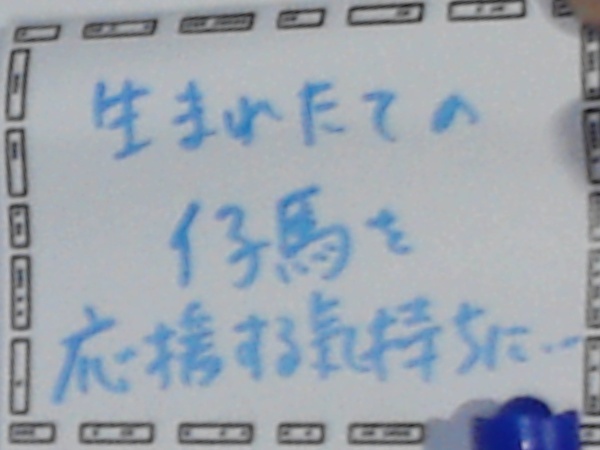 生まれたての
仔馬を
応援する気持ちに…